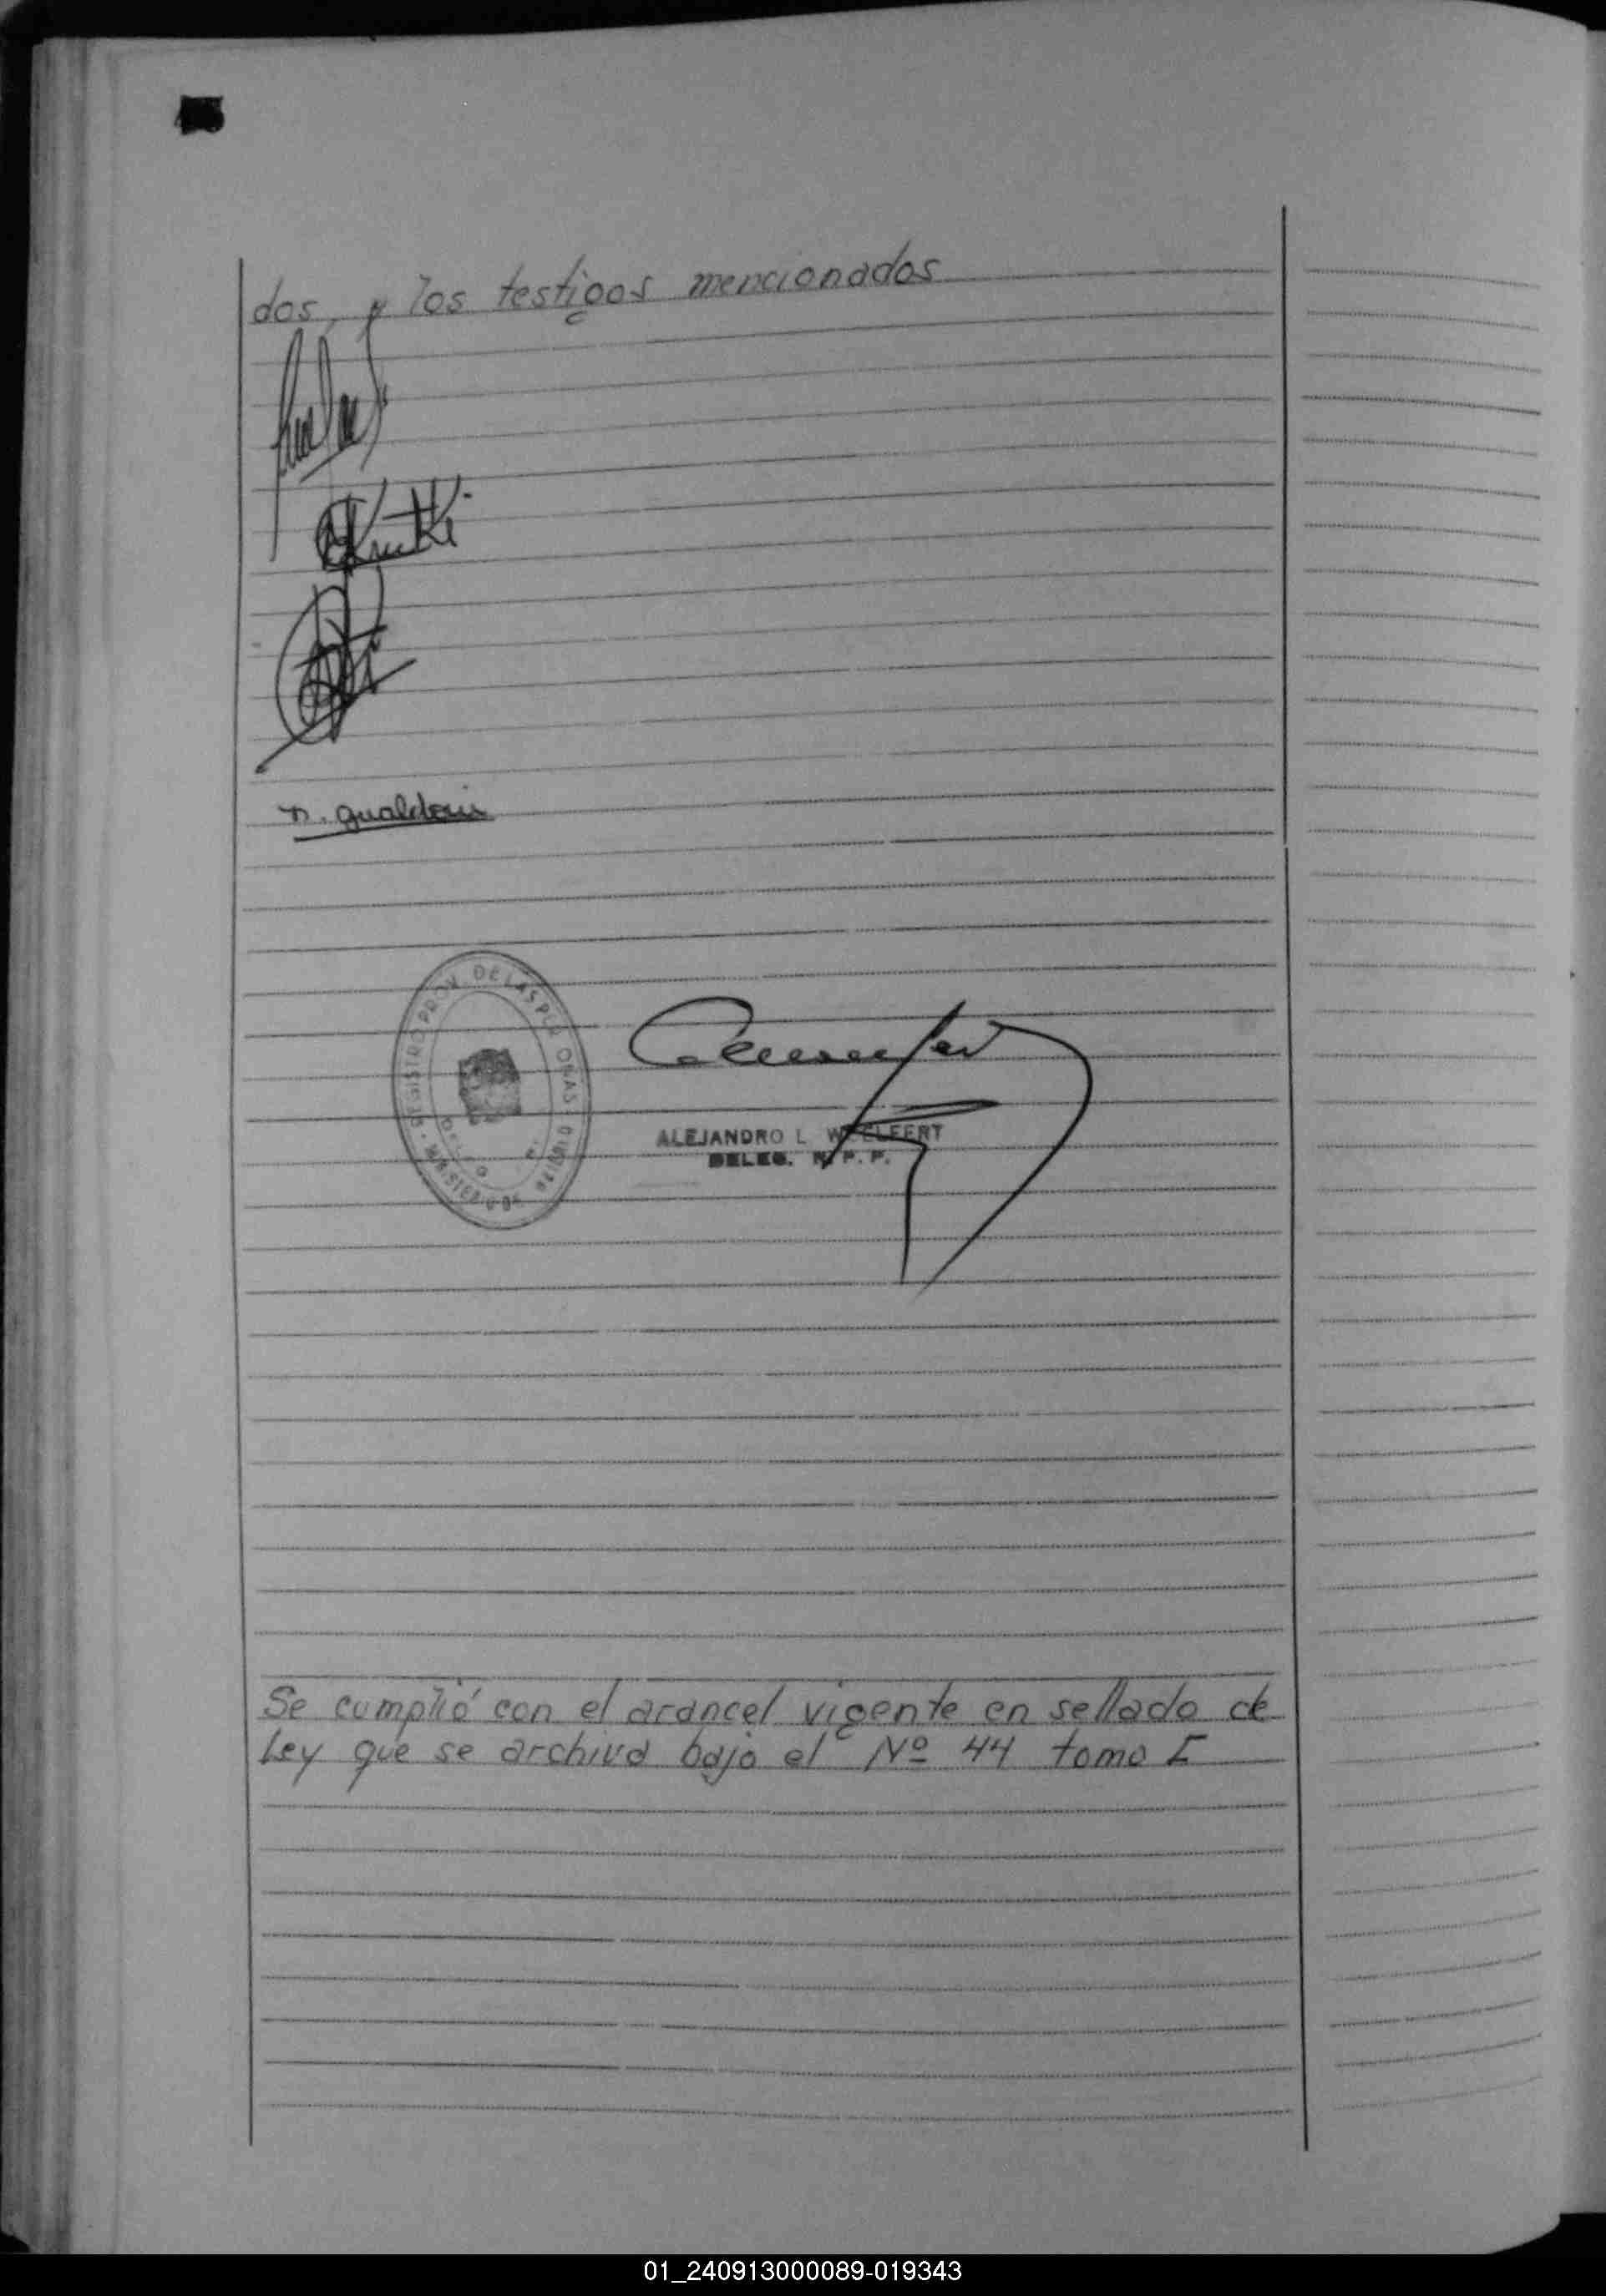 dos, y los testigos mencionados
n. gualdoni
REGISTRO PROV. DE LAS PERSONAS
ALEJANDRO L. WOELFERT
DELEG. R. P. P.
Se cumplió con el arancel vigente en sellado de
Ley que se archiva bajo el Nº 44 tomo I
01_240913000089-019343